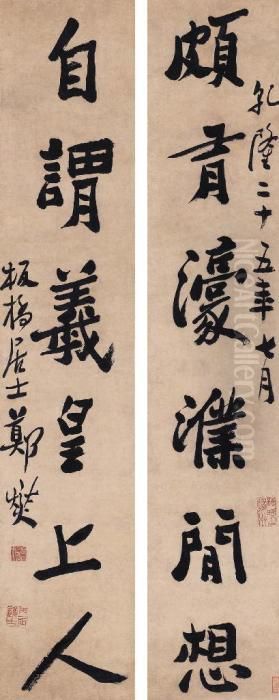 乾隆二十五年七月
頗有濠濮間想
自謂羲皇上人
板橋居士鄭燮